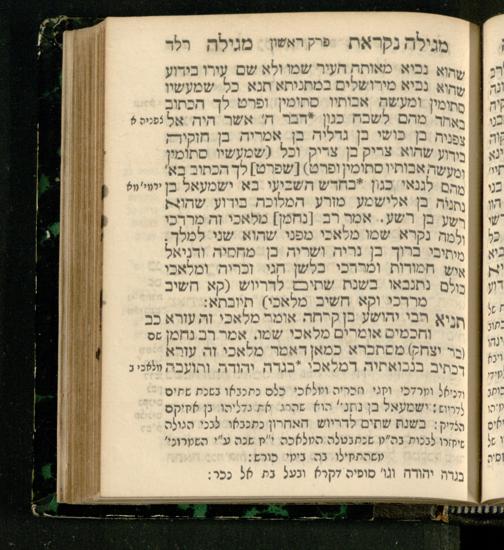 מגילה נקראת פרק ראשון מגילה רלד
שהוא נביא מאותה העיר שמו ולא שם עירו בידוע
שהוא נביא מירושלים במתניתא תנא כל שמעשיו
סתומין ומעשה אבותיו סתומין ופרט לך הכתוב
באחד מהם לשבח כגון *דבר ה' אשר היה אל צפניה א
צפניה בן כושי בן גדליה בן אמריה בן חזקיה
בידוע שהוא צדיק בן צדיק וכל (שמעשיו סתומין
ומעשה אבותיו סתומין ופרט) [שפרט] לך הכתוב בא'
מהם לגנאי כגון *בחדש השביעי בא ישמעאל בן ירמי' מא
נתניה בן אלישמע מזרע המלוכה בידוע שהוא
רשע בן רשע. אמר רב [נחמן] מלאכי זה מרדכי
ולמה נקרא שמו מלאכי מפני שהוא שני למלך.
מיתיבי ברוך בן נריה ושריה בן מחסיה ודניאל
איש חמודות ומרדכי בלשן חגי זכריה ומלאכי
כולם נתנבאו בשנת שתים לדריוש (קא חשיב
מרדכי וקא חשיב מלאכי) תיובתא:
תניא רבי יהושע בן קרחה אומר מלאכי זה עזרא כב
וחכמים אומרים מלאכי שמו. אמר רב נחמן שם
(בר יצחק) מסתברא כמאן דאמר מלאכי זה עזרא
דכתיב בנבואתיה דמלאכי *בגדה יהודה ותועבה מלאכי ב
ודניאל ומרדכי וחגי וזכריה ומלאכי כלם נתנבאו בשנת שתים
לדריוש: ישמעאל בן נתני' הוא שהרג את גדליהו בן אחיקם
הצדיק: בשנת שתים לדריוש האחרון נתנבאו לבני הגולה
שיחזרו לבנות בה"מ שבתבטלה המלאכה י"ח שנה ע"י השמרוני'
משהתחילו בה בימי כורש:
בגדה יהודה וגו' סופיה דקרא ובעל בת אל נכר: